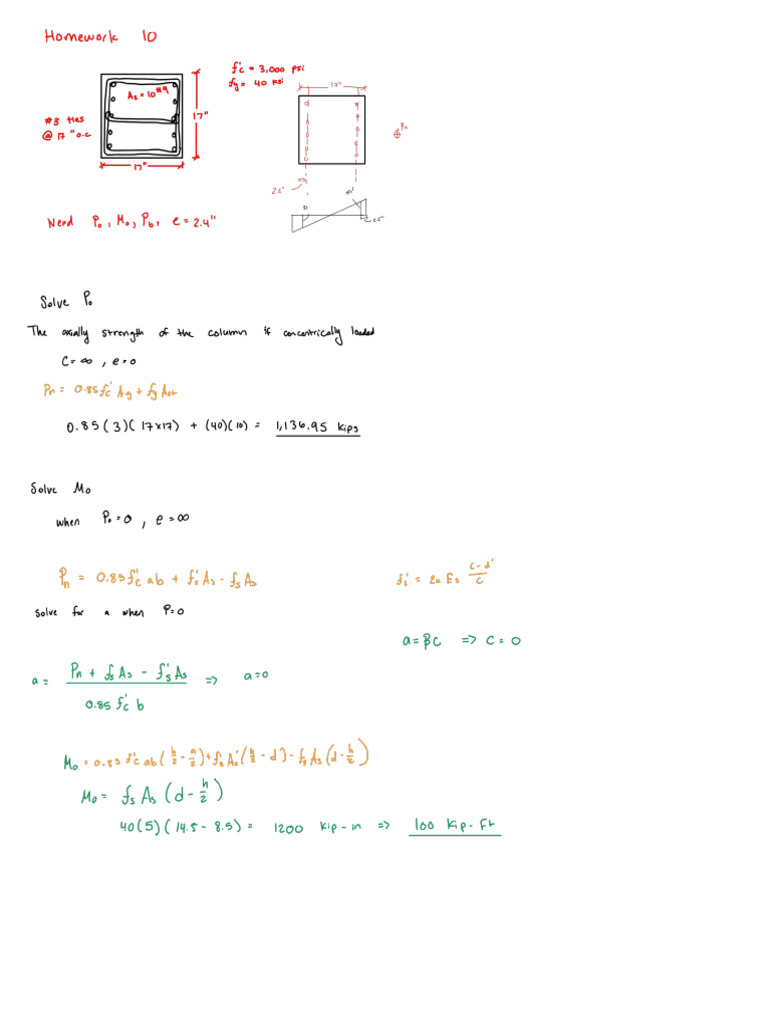 Homework 10
f'c = 3,000 psi
fy = 40 ksi
As = 10 #9
#3 ties
@ 17" o.c
17"
17"
17"
Pn
2.5"
2.5"
Need Po, Mo, Pb, e = 2.4"
Solve Po
The axially strength of the column if concentrically loaded
C = ∞, e = 0
Pn = 0.85 f'c Ag + fy Ast
0.85(3)(17x17) + (40)(10) = 1,136.95 kips
Solve Mo
when Po = 0, e = ∞
Pn = 0.85 f'c ab + f's As - fs As
f's = εu Es (c-d')/c
Solve for a when P=0
a = βc => c = 0
a = (Pn + fs As - f's As)/(0.85 f'c b) => a=0
Mo = 0.85 f'c ab (h/2 - a/2) + f's A's (h/2 - d) - fs As (d - h/2)
Mo = fs As (d - h/2)
40(5)(14.5 - 8.5) = 1200 kip-in => 100 kip-ft